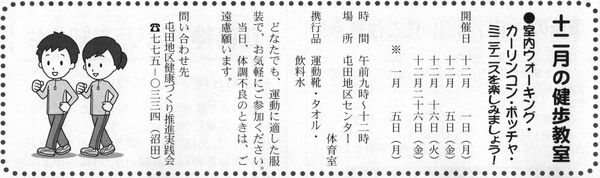 十二月の健歩教室
●室内ウォーキング・
カーリンコン・ボッチャ・
ミニテニスを楽しみましょう！
開催日　十二月　一日（月）
十二月　五日（金）
十二月十六日（火）
十二月二十六日（金）
※　一月　五日（月）
時　間　午前九時～十二時
場　所　屯田地区センター
体育室
携行品　運動靴・タオル・
飲料水
どなたでも、運動に適した服
装で、お気軽にご参加ください。
当日、体調不良のときは、ご
遠慮願います。
問い合わせ先
屯田地区健康づくり推進実践会
☎七七五－〇三三四（沼田）